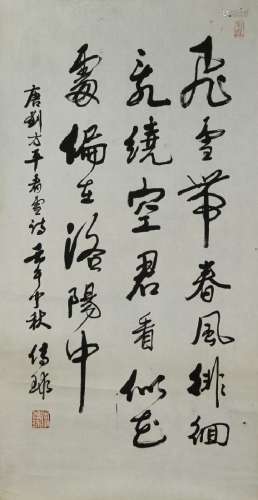 飛雪帶春風徘徊
亂繞空君看似花
處偏在洛陽中
唐劉方平春雪詩 壬午中秋